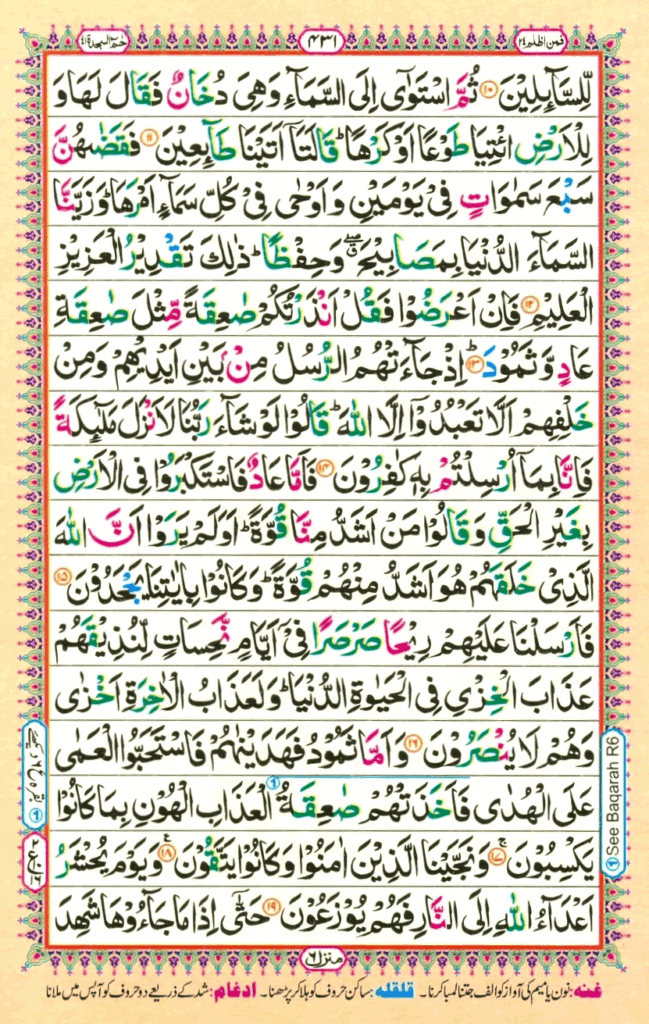 فمن اظلم ٢٤
٤٣١
حٰمٓ السجدة ٤١
لِّلسَّآىِٕلِیْنَ ۝۱۰ ثُمَّ اسْتَوٰۤی اِلَی السَّمَآءِ وَهِیَ دُخَانٌ فَقَالَ لَهَا وَ
لِلْاَرْضِ ائْتِیَا طَوْعًا اَوْ كَرْهًا ؕ قَالَتَاۤ اَتَیْنَا طَآىِٕعِیْنَ ۝۱۱ فَقَضٰىهُنَّ
سَبْعَ سَمٰوَاتٍ فِیْ یَوْمَیْنِ وَ اَوْحٰی فِیْ كُلِّ سَمَآءٍ اَمْرَهَا ؕ وَ زَیَّنَّا
السَّمَآءَ الدُّنْیَا بِمَصَابِیْحَ ۖۗ وَ حِفْظًا ؕ ذٰلِكَ تَقْدِیْرُ الْعَزِیْزِ
الْعَلِیْمِ ۝۱۲ فَاِنْ اَعْرَضُوْا فَقُلْ اَنْذَرْتُكُمْ صٰعِقَةً مِّثْلَ صٰعِقَةِ
عَادٍ وَّ ثَمُوْدَ ؕ۝۱۳ اِذْ جَآءَتْهُمُ الرُّسُلُ مِنْۢ بَیْنِ اَیْدِیْهِمْ وَمِنْ
خَلْفِهِمْ اَلَّا تَعْبُدُوْۤا اِلَّا اللّٰهَ ؕ قَالُوْا لَوْ شَآءَ رَبُّنَا لَاَنْزَلَ مَلٰٓىِٕكَةً
فَاِنَّا بِمَاۤ اُرْسِلْتُمْ بِهٖ كٰفِرُوْنَ ۝۱۴ فَاَمَّا عَادٌ فَاسْتَكْبَرُوْا فِی الْاَرْضِ
بِغَیْرِ الْحَقِّ وَ قَالُوْا مَنْ اَشَدُّ مِنَّا قُوَّةً ؕ اَوَلَمْ یَرَوْا اَنَّ اللّٰهَ
الَّذِیْ خَلَقَهُمْ هُوَ اَشَدُّ مِنْهُمْ قُوَّةً ؕ وَ كَانُوْا بِاٰیٰتِنَا یَجْحَدُوْنَ ۝۱۵
فَاَرْسَلْنَا عَلَیْهِمْ رِیْحًا صَرْصَرًا فِیْۤ اَیَّامٍ نَّحِسَاتٍ لِّنُذِیْقَهُمْ
عَذَابَ الْخِزْیِ فِی الْحَیٰوةِ الدُّنْیَا ؕ وَ لَعَذَابُ الْاٰخِرَةِ اَخْزٰی
وَهُمْ لَا یُنْصَرُوْنَ ۝۱۶ وَ اَمَّا ثَمُوْدُ فَهَدَیْنٰهُمْ فَاسْتَحَبُّوا الْعَمٰی
عَلَی الْهُدٰی فَاَخَذَتْهُمْ صٰعِقَةُ الْعَذَابِ الْهُوْنِ بِمَا كَانُوْا
یَكْسِبُوْنَ ۚ۝۱۷ وَ نَجَّیْنَا الَّذِیْنَ اٰمَنُوْا وَ كَانُوْا یَتَّقُوْنَ ۠۝۱۸ وَ یَوْمَ یُحْشَرُ
اَعْدَآءُ اللّٰهِ اِلَی النَّارِ فَهُمْ یُوْزَعُوْنَ ۝۱۹ حَتّٰۤی اِذَا مَا جَآءُوْهَا شَهِدَ
See Baqarah R6
منزل ٦
غنه: نون یا میم کی آواز کو الف جتنا لمبا کرنا۔ قلقله: ساکن حروف کو ہلا کر پڑھنا۔ ادغام: شد کے ذریعے دو حروف کو آپس میں ملانا